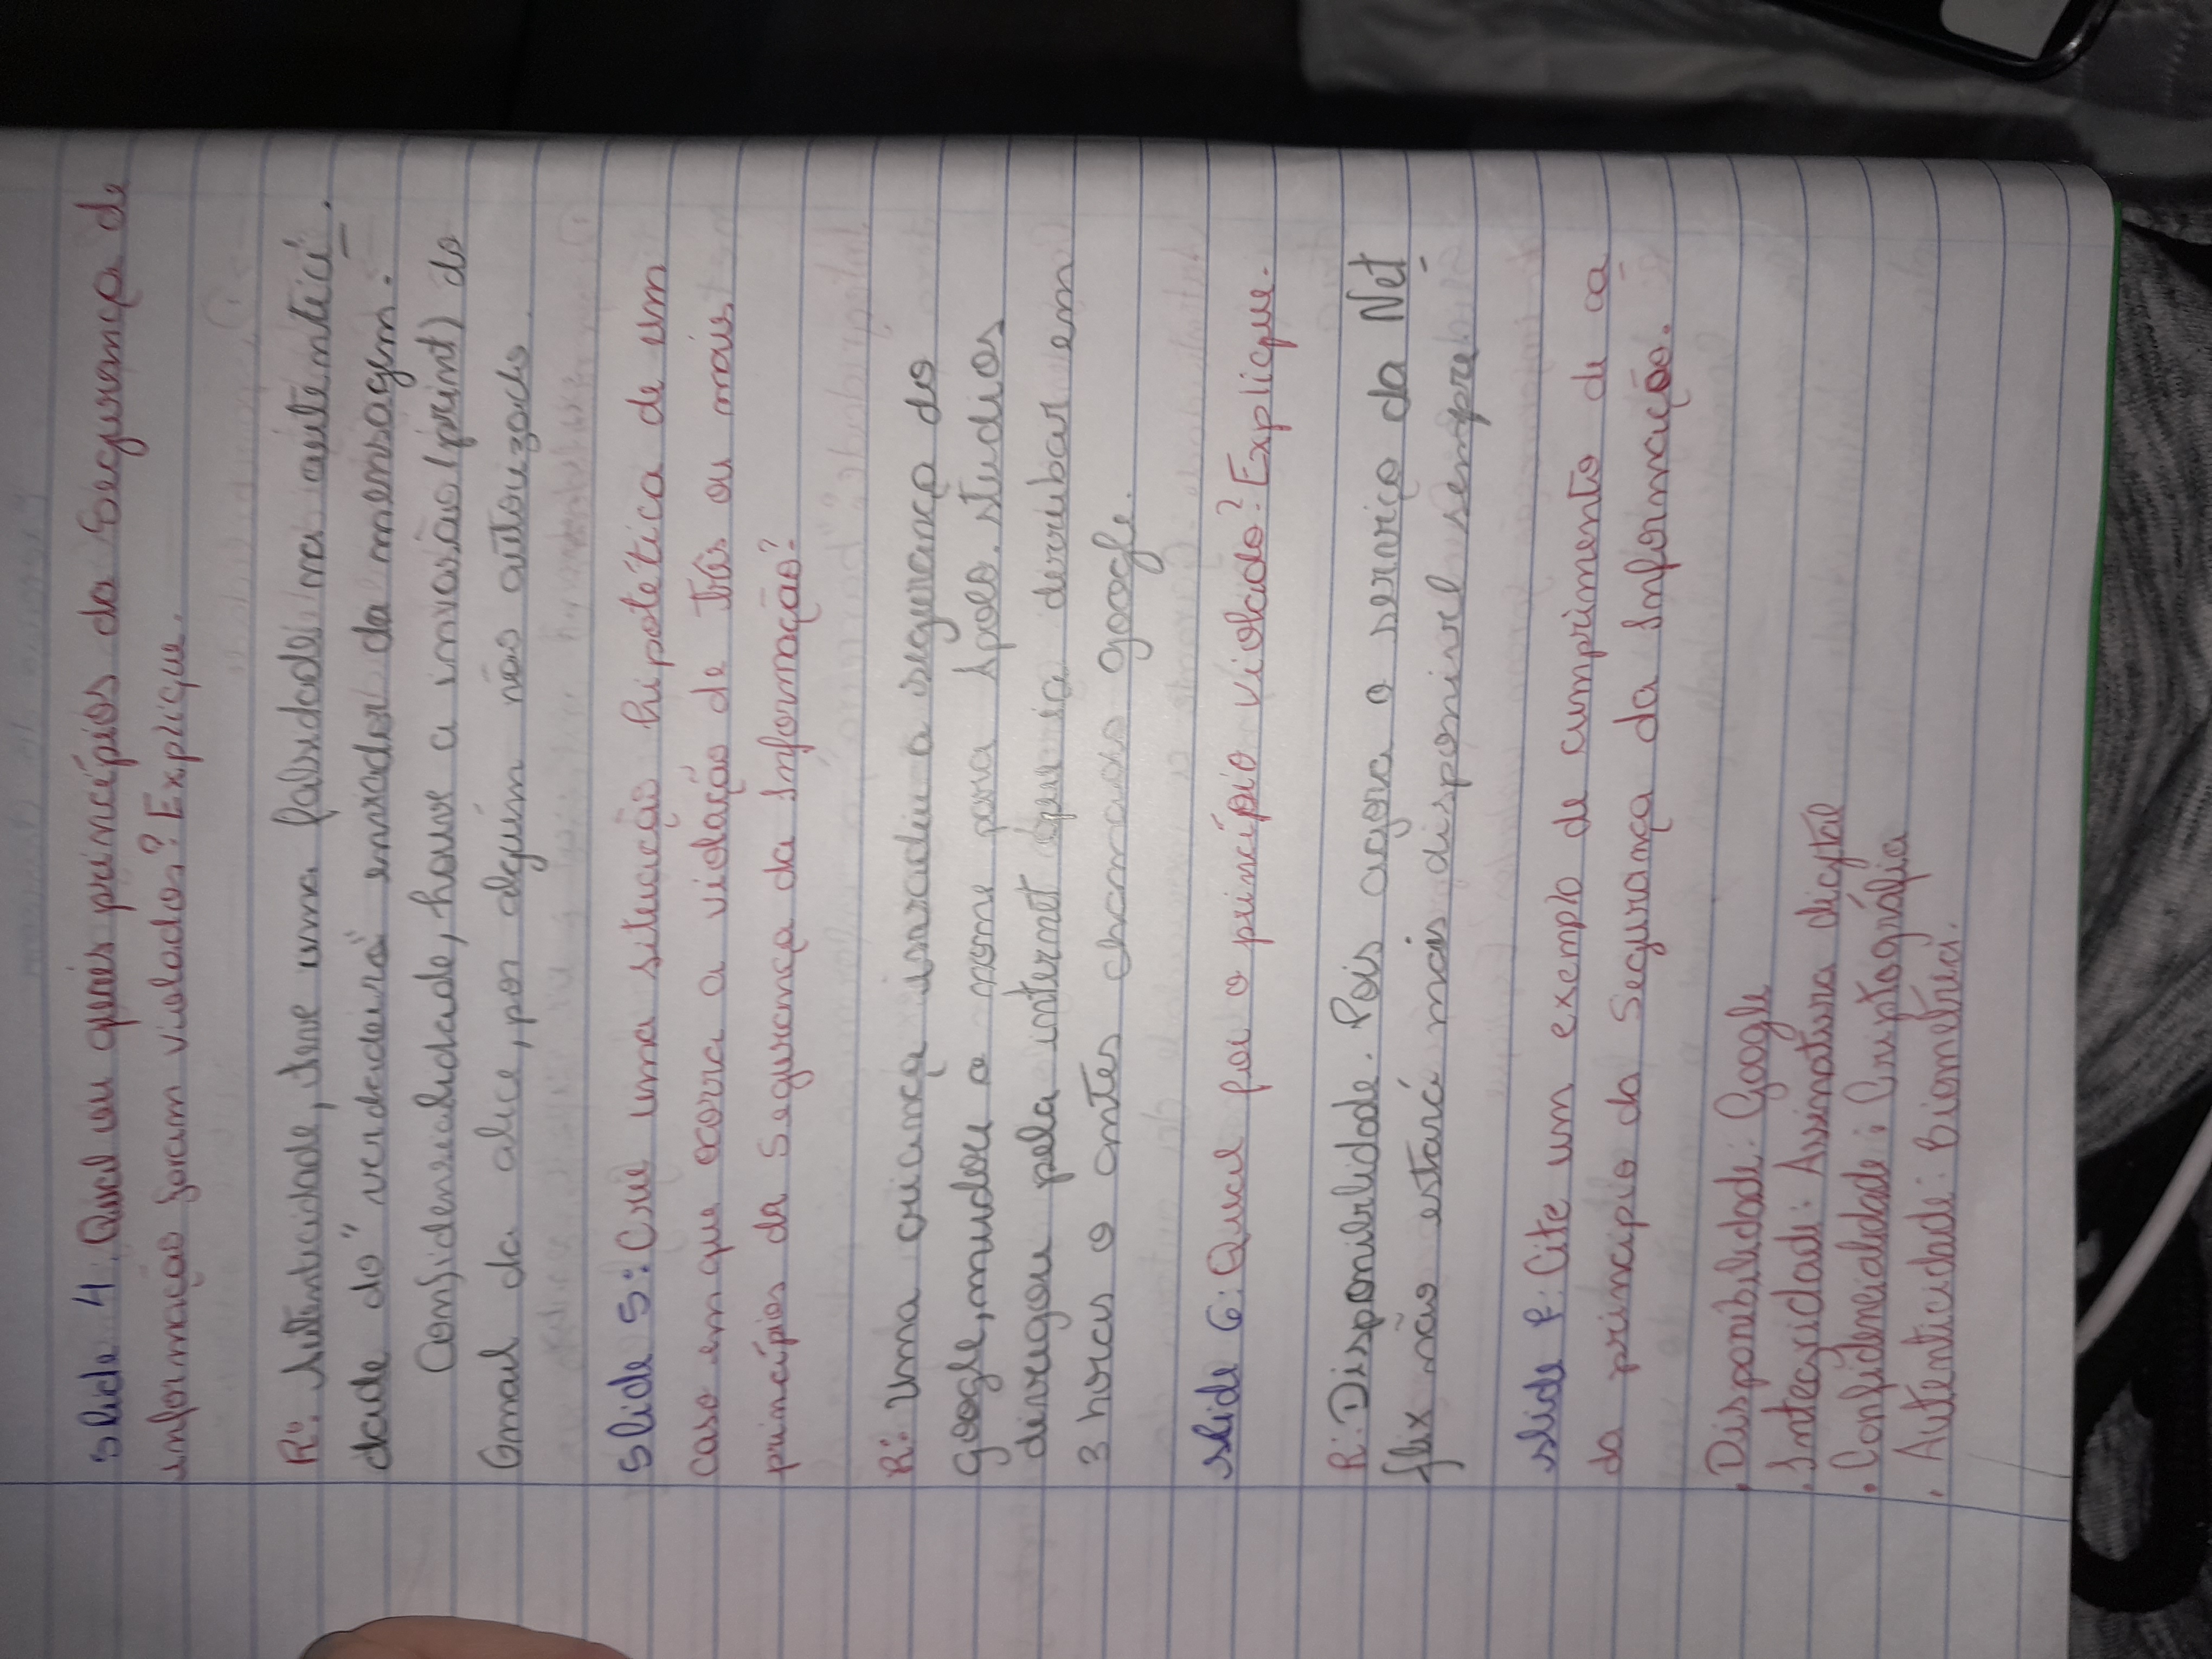 Slide 4: Qual ou quais princípios da Segurança de
informação foram violados? Explique.
R: Autenticidade, teve uma falsidade na autentici
dade do "verdadeiro" enviador da mensagem.
Confidensialidade, houve a invasão (print) do
Gmail da alice, por alguém não autorizado.
Slide 5: Crie uma situação hipotética de um
caso em que ocorra a violação de três ou mais
princípios da Segurança da Informação?
R: Uma criança invadiu a segurança do
google, mudou o nome para Apolo. studios
divugou pela internet que ia derrubar em
3 horas o antes chamado google.
slide 6: Qual foi o princípio violado? Explique.
R: Disponibilidade. Pois agora o serviço da Net
flix não estará mais disponivel sempre.
slide 7: Cite um exemplo de cumprimento de ca
da principio da Segurança da Informação.
. Disponibilidade: Google
. Integridade: Assinatura digital
. Confidencialidade: Criptográfia
. Autenticidade: Biometria.